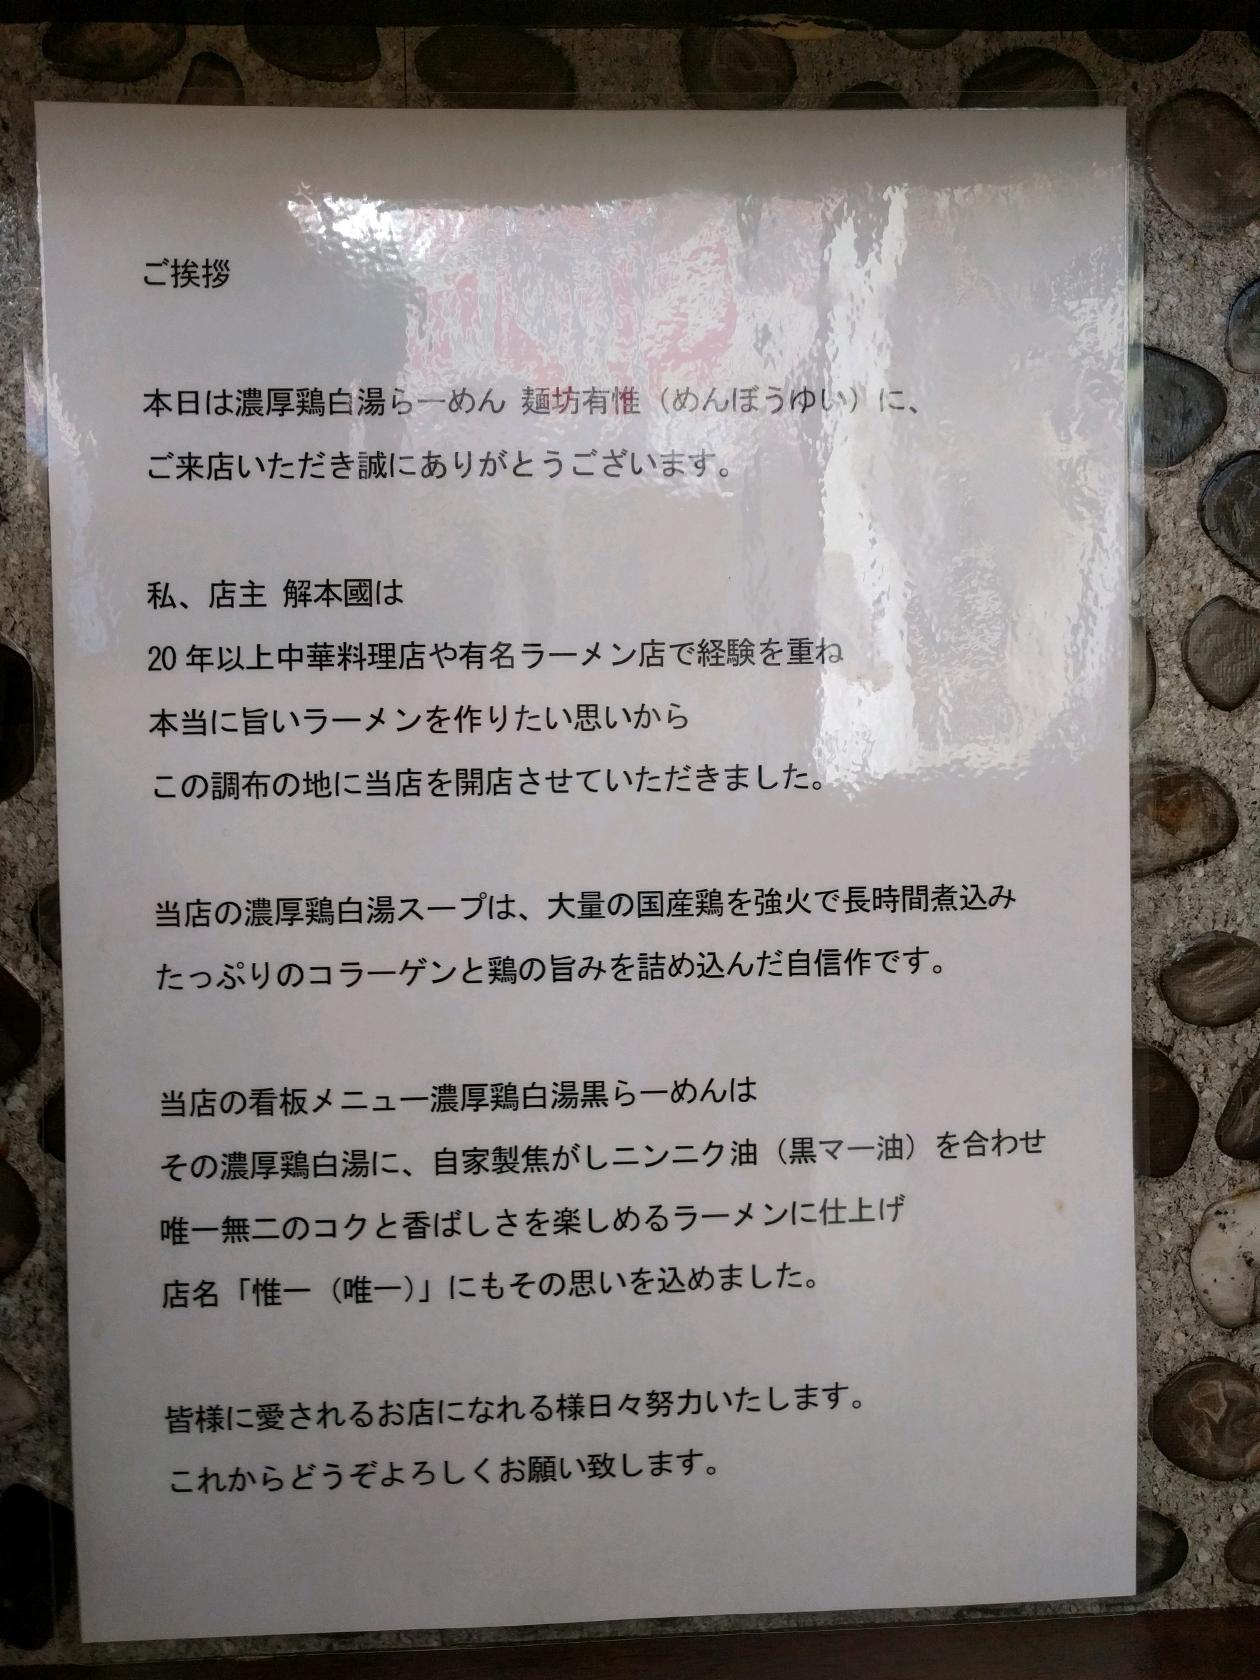 ご挨拶
本日は濃厚鶏白湯らーめん 麺坊有惟（めんぼうゆい）に、
ご来店いただき誠にありがとうございます。
私、店主 解本國は
20年以上中華料理店や有名ラーメン店で経験を重ね
本当に旨いラーメンを作りたい思いから
この調布の地に当店を開店させていただきました。
当店の濃厚鶏白湯スープは、大量の国産鶏を強火で長時間煮込み
たっぷりのコラーゲンと鶏の旨みを詰め込んだ自信作です。
当店の看板メニュー濃厚鶏白湯黒らーめんは
その濃厚鶏白湯に、自家製焦がしニンニク油（黒マー油）を合わせ
唯一無二のコクと香ばしさを楽しめるラーメンに仕上げ
店名「惟一（唯一）」にもその思いを込めました。
皆様に愛されるお店になれる様日々努力いたします。
これからどうぞよろしくお願い致します。